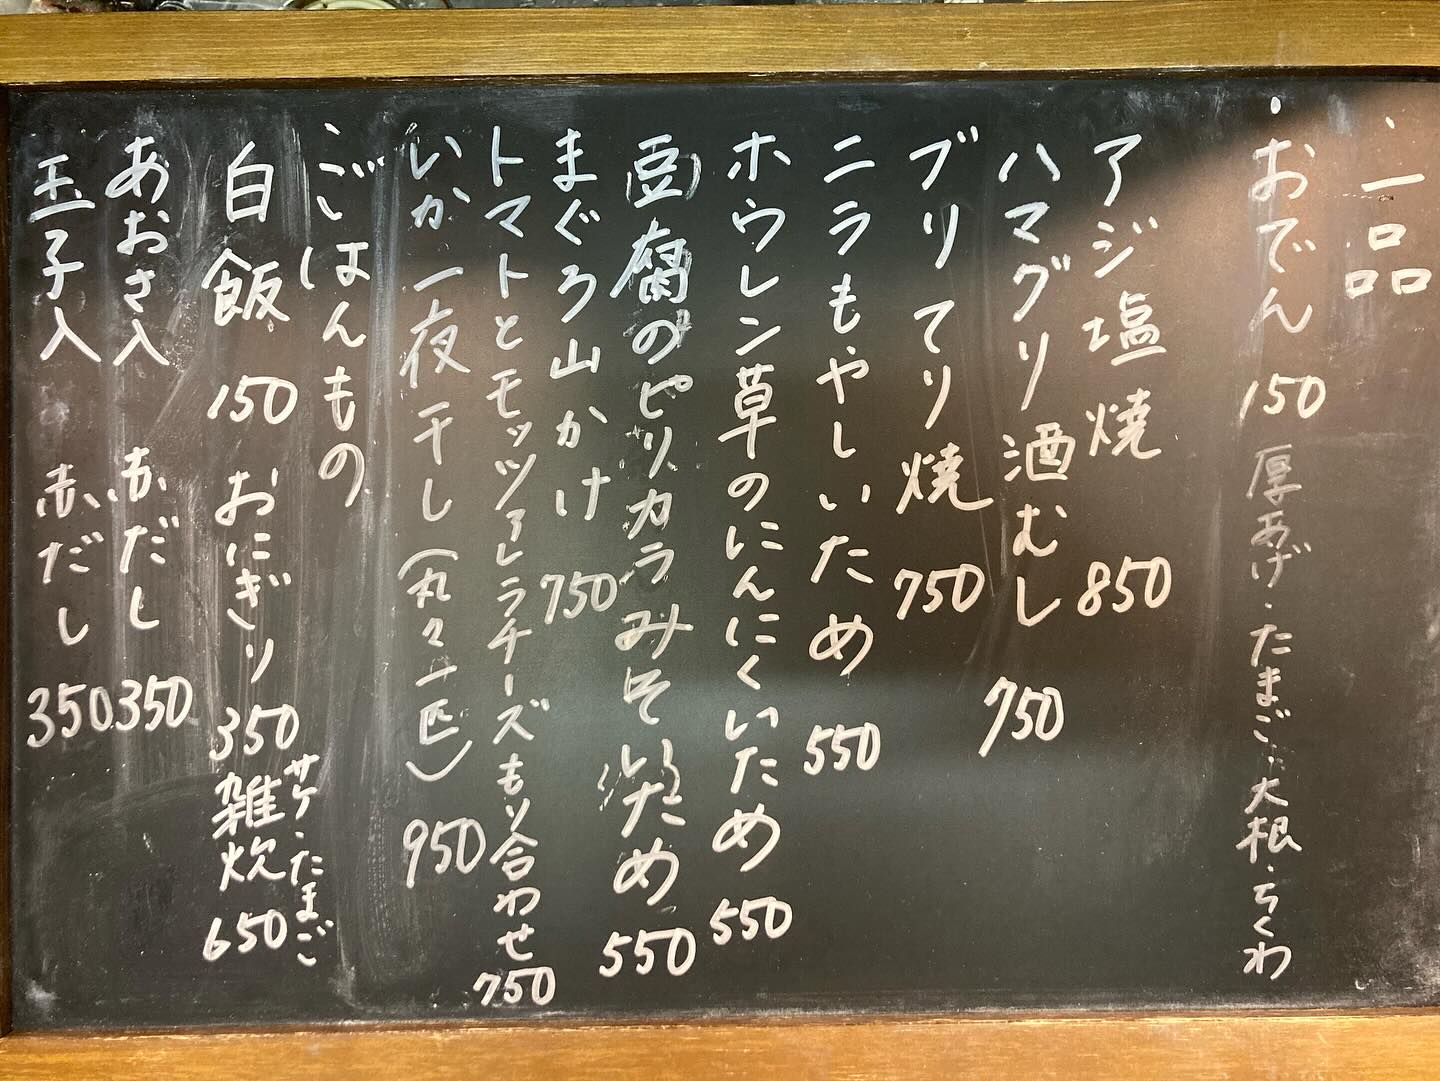 ・一品
・おでん 150 厚あげ・たまご・大根・ちくわ
アジ塩焼 850
ハマグリ酒むし 750
ブリてり焼 750
ニラもやしいため 550
ホウレン草のにんにくいため 550
豆腐のピリカラみそいため 550
まぐろ山かけ 750
トマトとモッツァレラチーズもり合わせ 750
いか一夜干し(丸々一匹) 950
ごはんもの
白飯 150 おにぎり 350 雑炊 650 サケ・たまご
あおさ入 赤だし 350
玉子入 赤だし 350